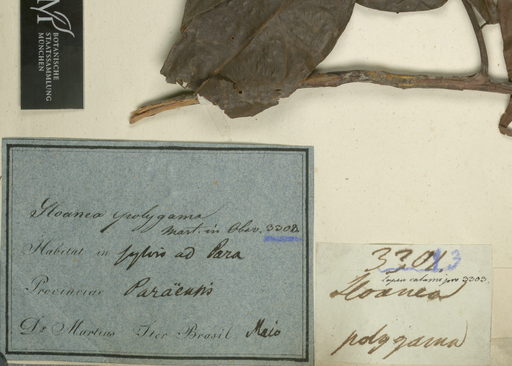 M
BOTANISCHE
STAATSSAMMLUNG
MÜNCHEN
Sloanea polygama
Mart. in Obsv. 3302
Habitat in sylvis ad Para
Provinciae Paraënsis
Dr Martius Iter Brasil Maio
lapsu calami pro 3303.
Sloanea
polygama